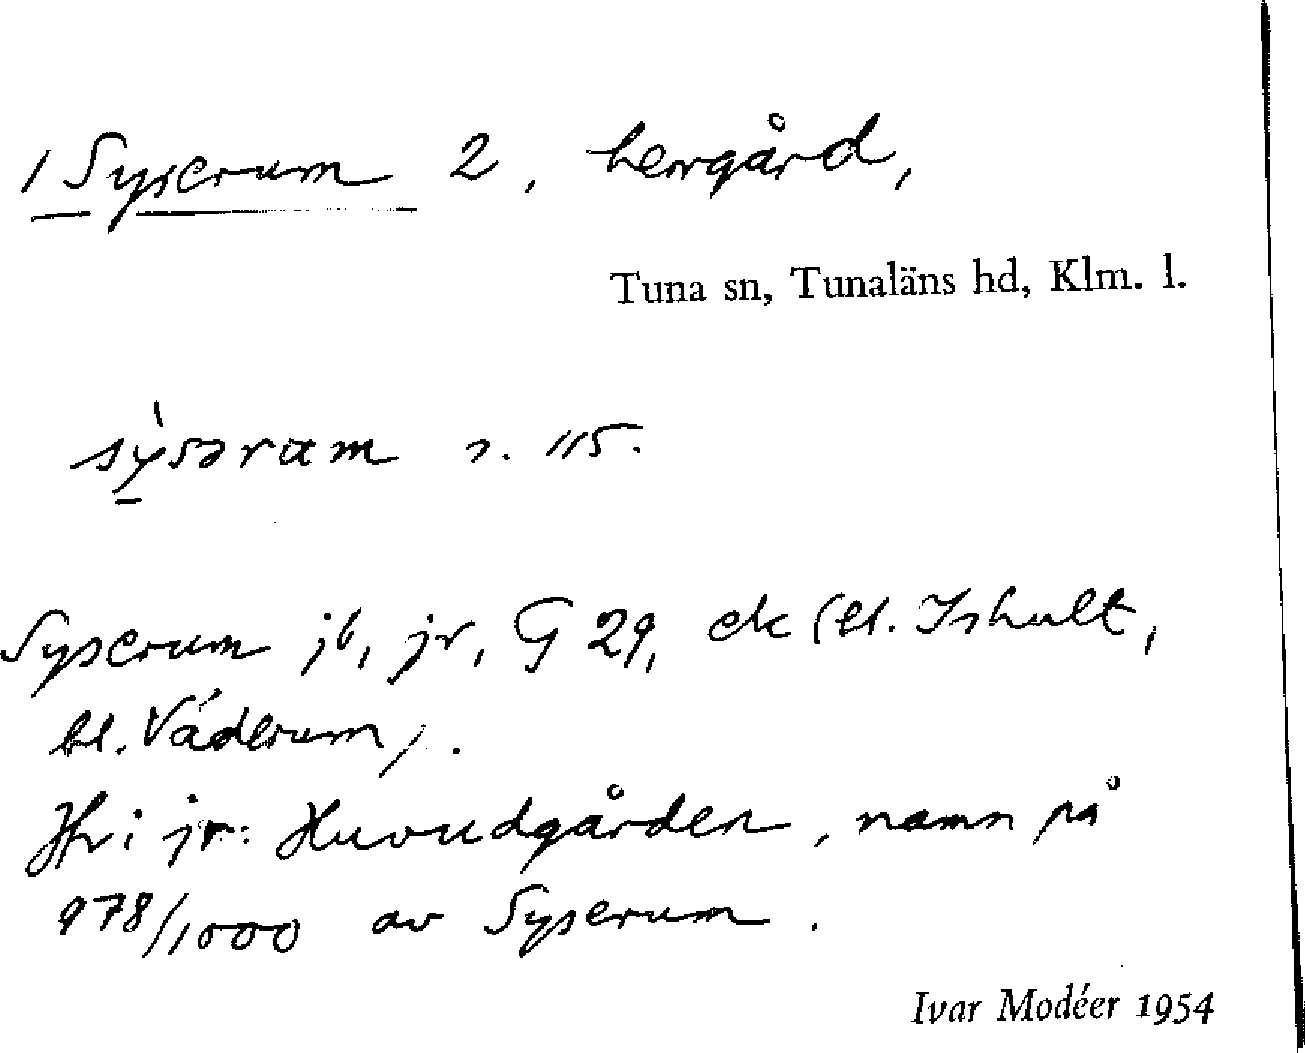 / Syserum 2, herrgård,
Tuna sn, Tunaläns hd, Klm. l.
sỳsəram s. 115.
Syserum jb, jr, G 29, ek (bl. Ishult,
bl. Väderum).
Hri jr: Huvudgården, namn på
978/1000 av Syserum.
Ivar Modéer 1954